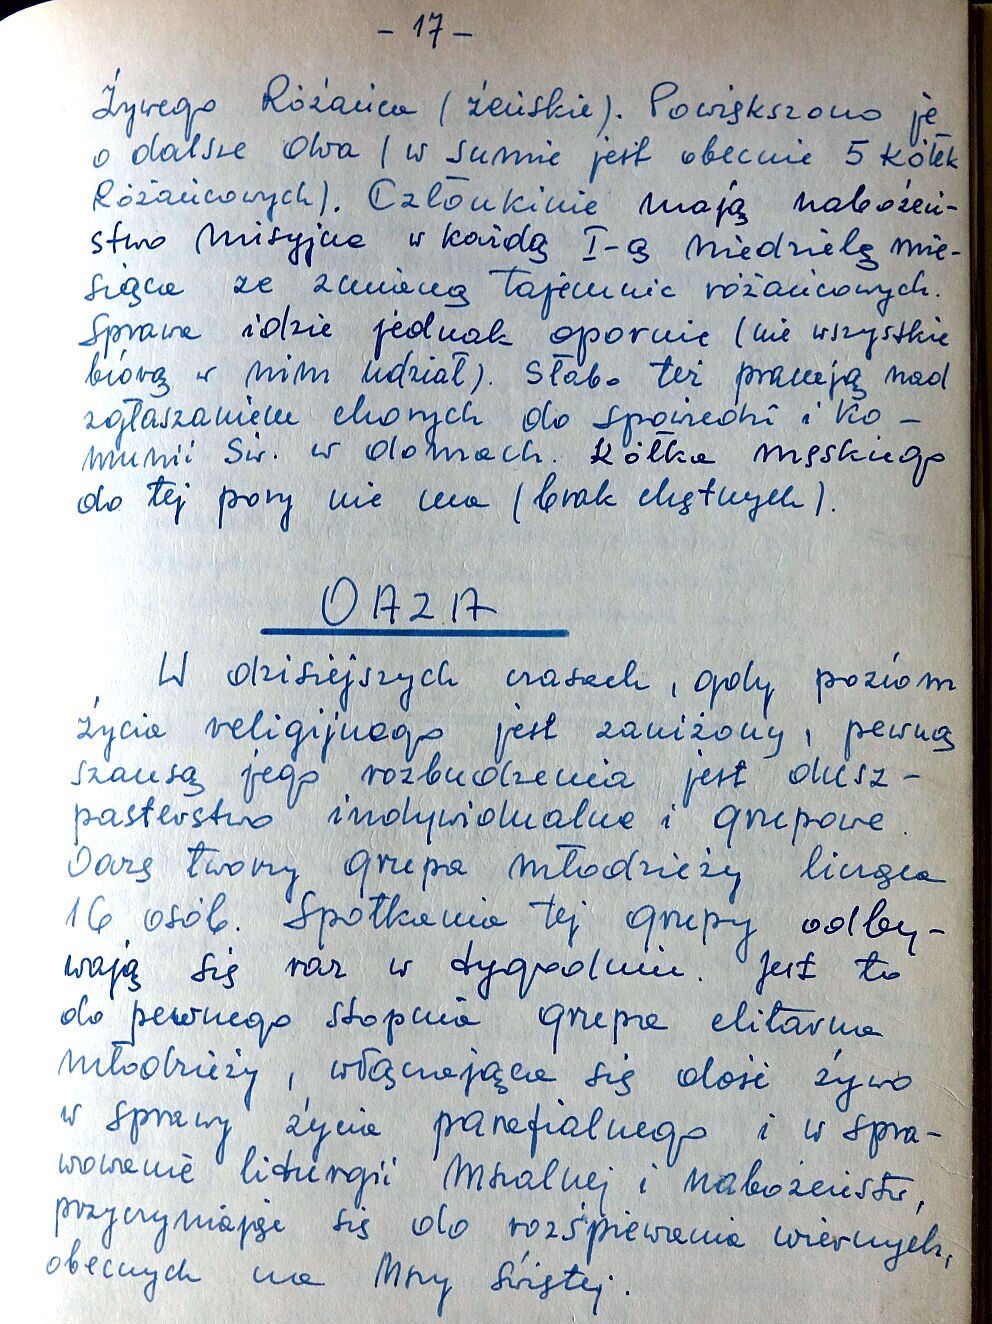 - 17 -
Żywego Różańca (żeńskie). Powiększono je
o dalsze dwa (w sumie jest obecnie 5 kółek
Różańcowych). Członkinie mają nabożeń-
stwo misyjne w każdą I-ą niedzielę mie-
siąca ze zmianą tajemnic różańcowych.
Sprawa idzie jednak opornie (nie wszystkie
biorą w nim udział). Słabo też pracują nad
zgłaszaniem chorych do spowiedzi i Ko-
munii Św. w domach. Kółka męskiego
do tej pory nie ma (brak chętnych).
OAZA
W dzisiejszych czasach, gdy poziom
życia religijnego jest zaniżony, pewną
szansą jego rozbudzenia jest dusz-
pasterstwo indywidualne i grupowe.
Oazę tworzy grupa młodzieży licząca
16 osób. Spotkania tej grupy odby-
wają się raz w tygodniu. Jest to
do pewnego stopnia grupa elitarna
młodzieży, włączająca się dość żywo
w sprawy życia parafialnego i w spra-
wowanie liturgii Mszalnej i nabożeństw,
przyczyniając się do rozśpiewania wiernych,
obecnych na Mszy Świętej.